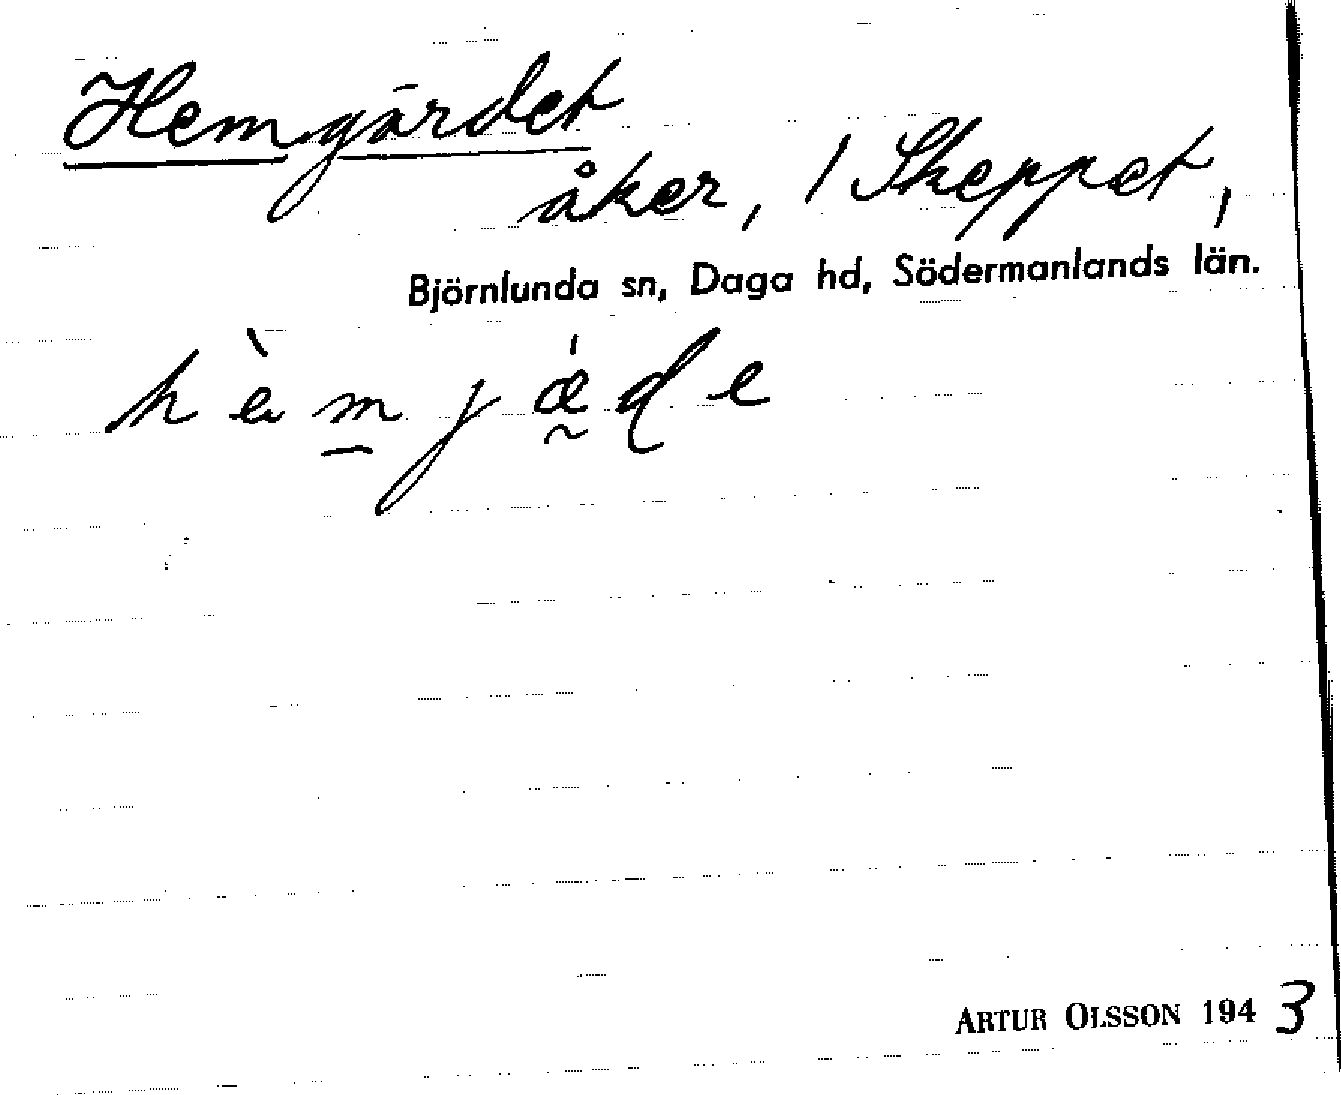 Hemgärdet
åker, 1 Skeppet,
Björnlunda sn, Daga hd, Södermanlands län.
hèmjǽ̰ɖe
ARTUR OLSSON 1943